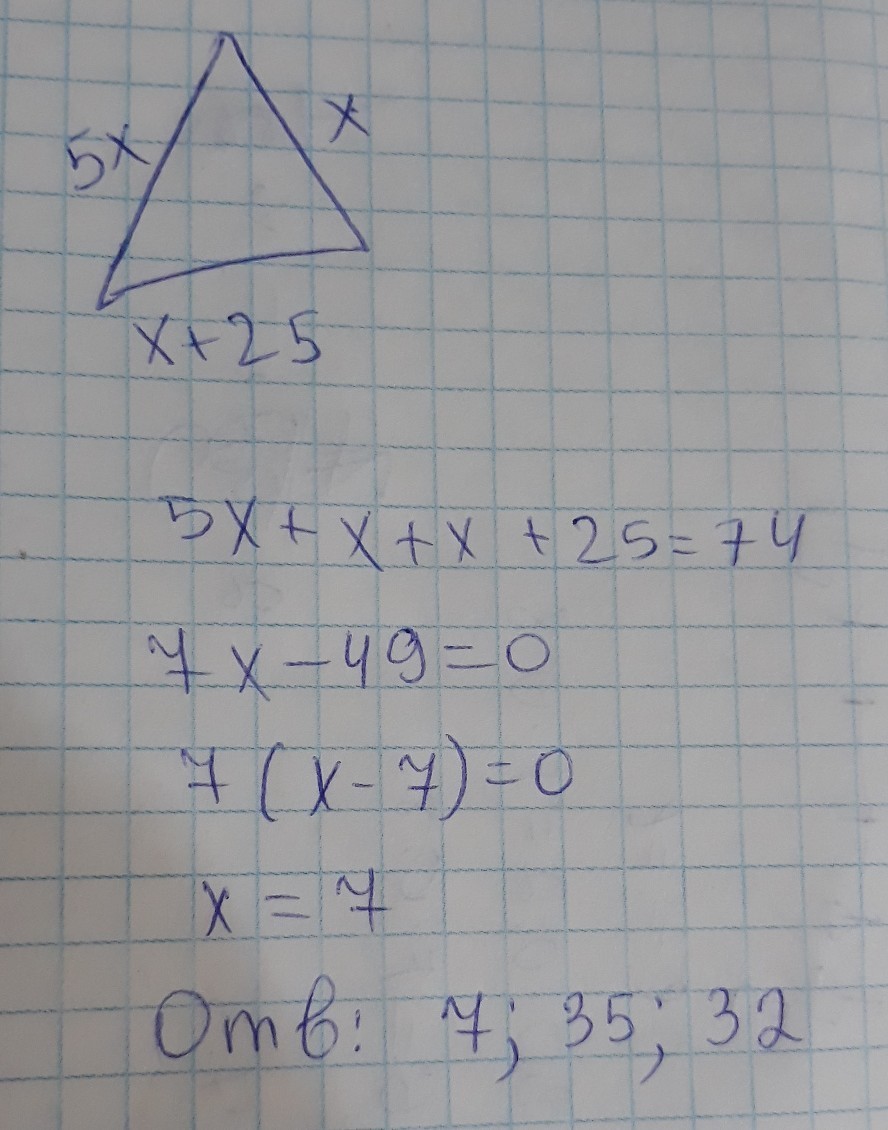 5x
x
x+25
5x + x + x + 25 = 74
7x - 49 = 0
7 (x - 7) = 0
x = 7
Отв: 7; 35; 32